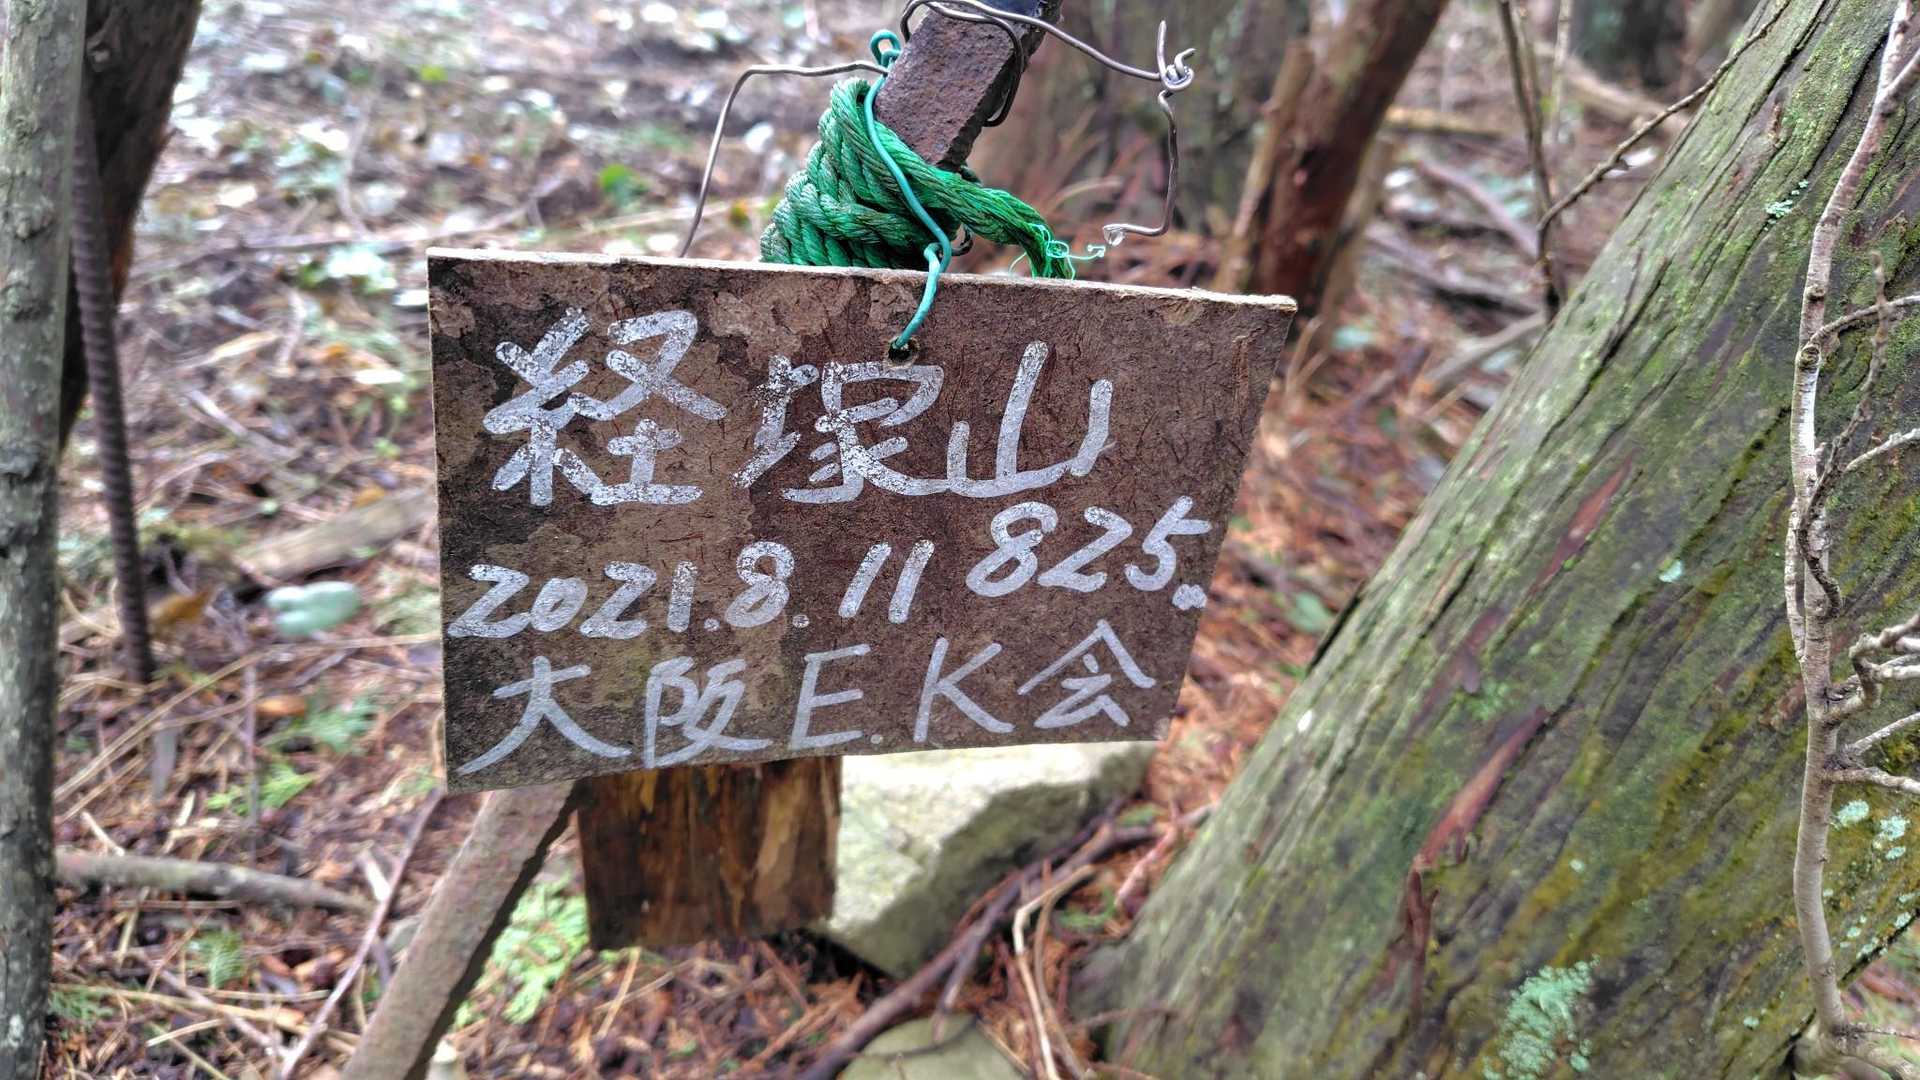 経塚山
825m
2021.8.11
大阪E.K会